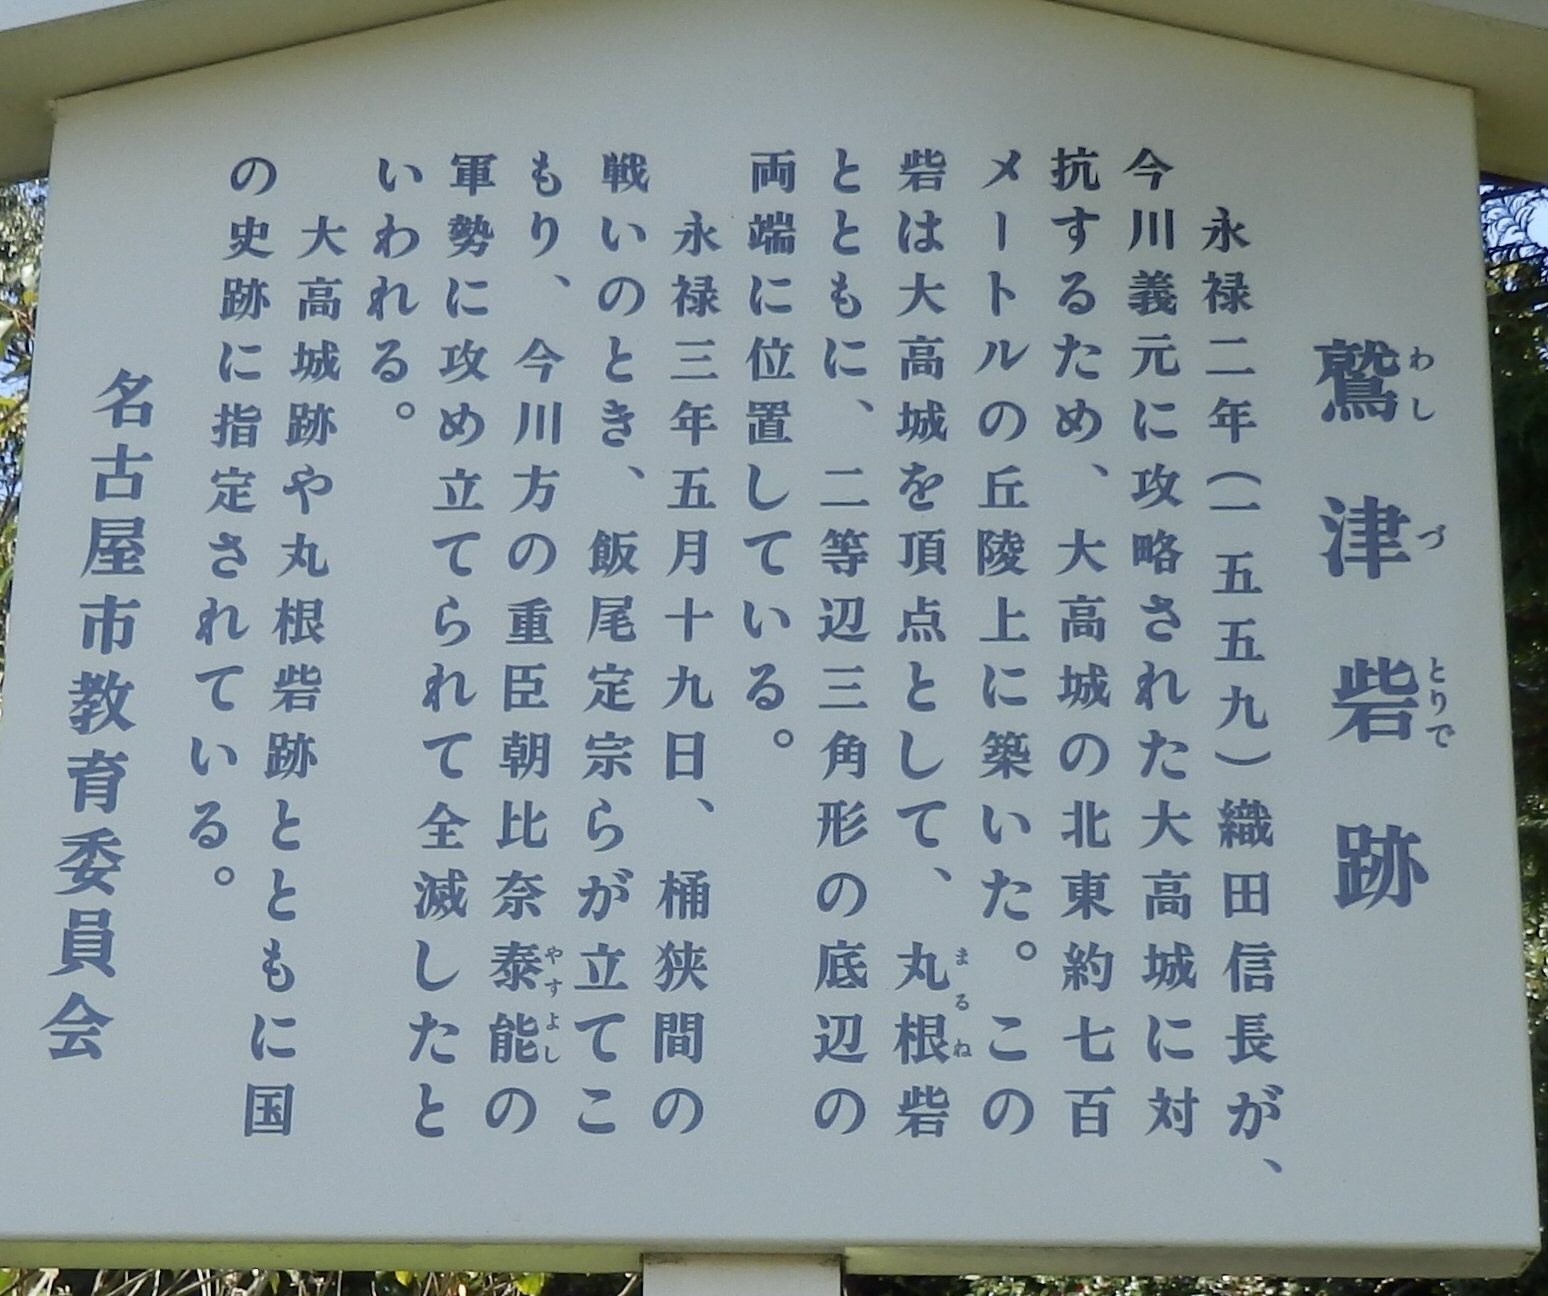 鷲津砦跡
わしづとりで
永禄二年(一五五九)織田信長が、
今川義元に攻略された大高城に対
抗するため、大高城の北東約七百
メートルの丘陵上に築いた。この
砦は大高城を頂点として、丸根砦
まるね
とともに、二等辺三角形の底辺の
両端に位置している。
永禄三年五月十九日、桶狭間の
戦いのとき、飯尾定宗らが立てこ
もり、今川方の重臣朝比奈泰能の
やすよし
軍勢に攻め立てられて全滅したと
いわれる。
大高城跡や丸根砦跡とともに国
の史跡に指定されている。
名古屋市教育委員会